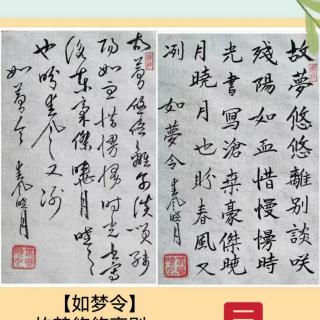 故夢悠悠離別談咲
殘陽如血惜慢慢時
光書寫滄桑豪傑曉
月曉月也盼春風又
冽
如夢令 春風曉月
故夢悠悠離別談咲殘
陽如血惜慢慢時光書寫
滄桑豪傑曉月曉月
也盼春風又冽
如夢令
春風曉月
【如梦令】